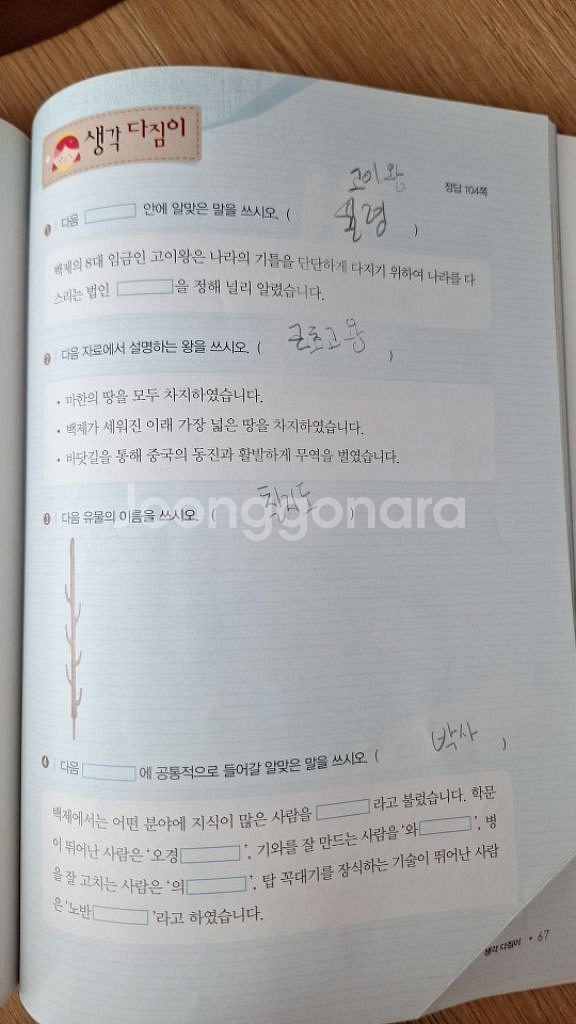 생각 다짐이
고이왕
정답 104쪽
1 다음 안에 알맞은 말을 쓰시오. ( 율령 )
백제의 8대 임금인 고이왕은 나라의 기틀을 단단하게 다지기 위하여 나라를 다
스리는 법인 을 정해 널리 알렸습니다.
2 다음 자료에서 설명하는 왕을 쓰시오. ( 근초고왕 )
• 마한의 땅을 모두 차지하였습니다.
• 백제가 세워진 이래 가장 넓은 땅을 차지하였습니다.
• 바닷길을 통해 중국의 동진과 활발하게 무역을 벌였습니다.
leonggonara
3 다음 유물의 이름을 쓰시오. ( 칠지도 )
4 다음 에 공통적으로 들어갈 알맞은 말을 쓰시오. ( 박사 )
백제에서는 어떤 분야에 지식이 많은 사람을 라고 불렀습니다. 학문
이 뛰어난 사람은 '오경 ', 기와를 잘 만드는 사람을 '와 ', 병
을 잘 고치는 사람은 '의 ', 탑 꼭대기를 장식하는 기술이 뛰어난 사람
은 '노반 '라고 하였습니다.
생각 다짐이 • 67